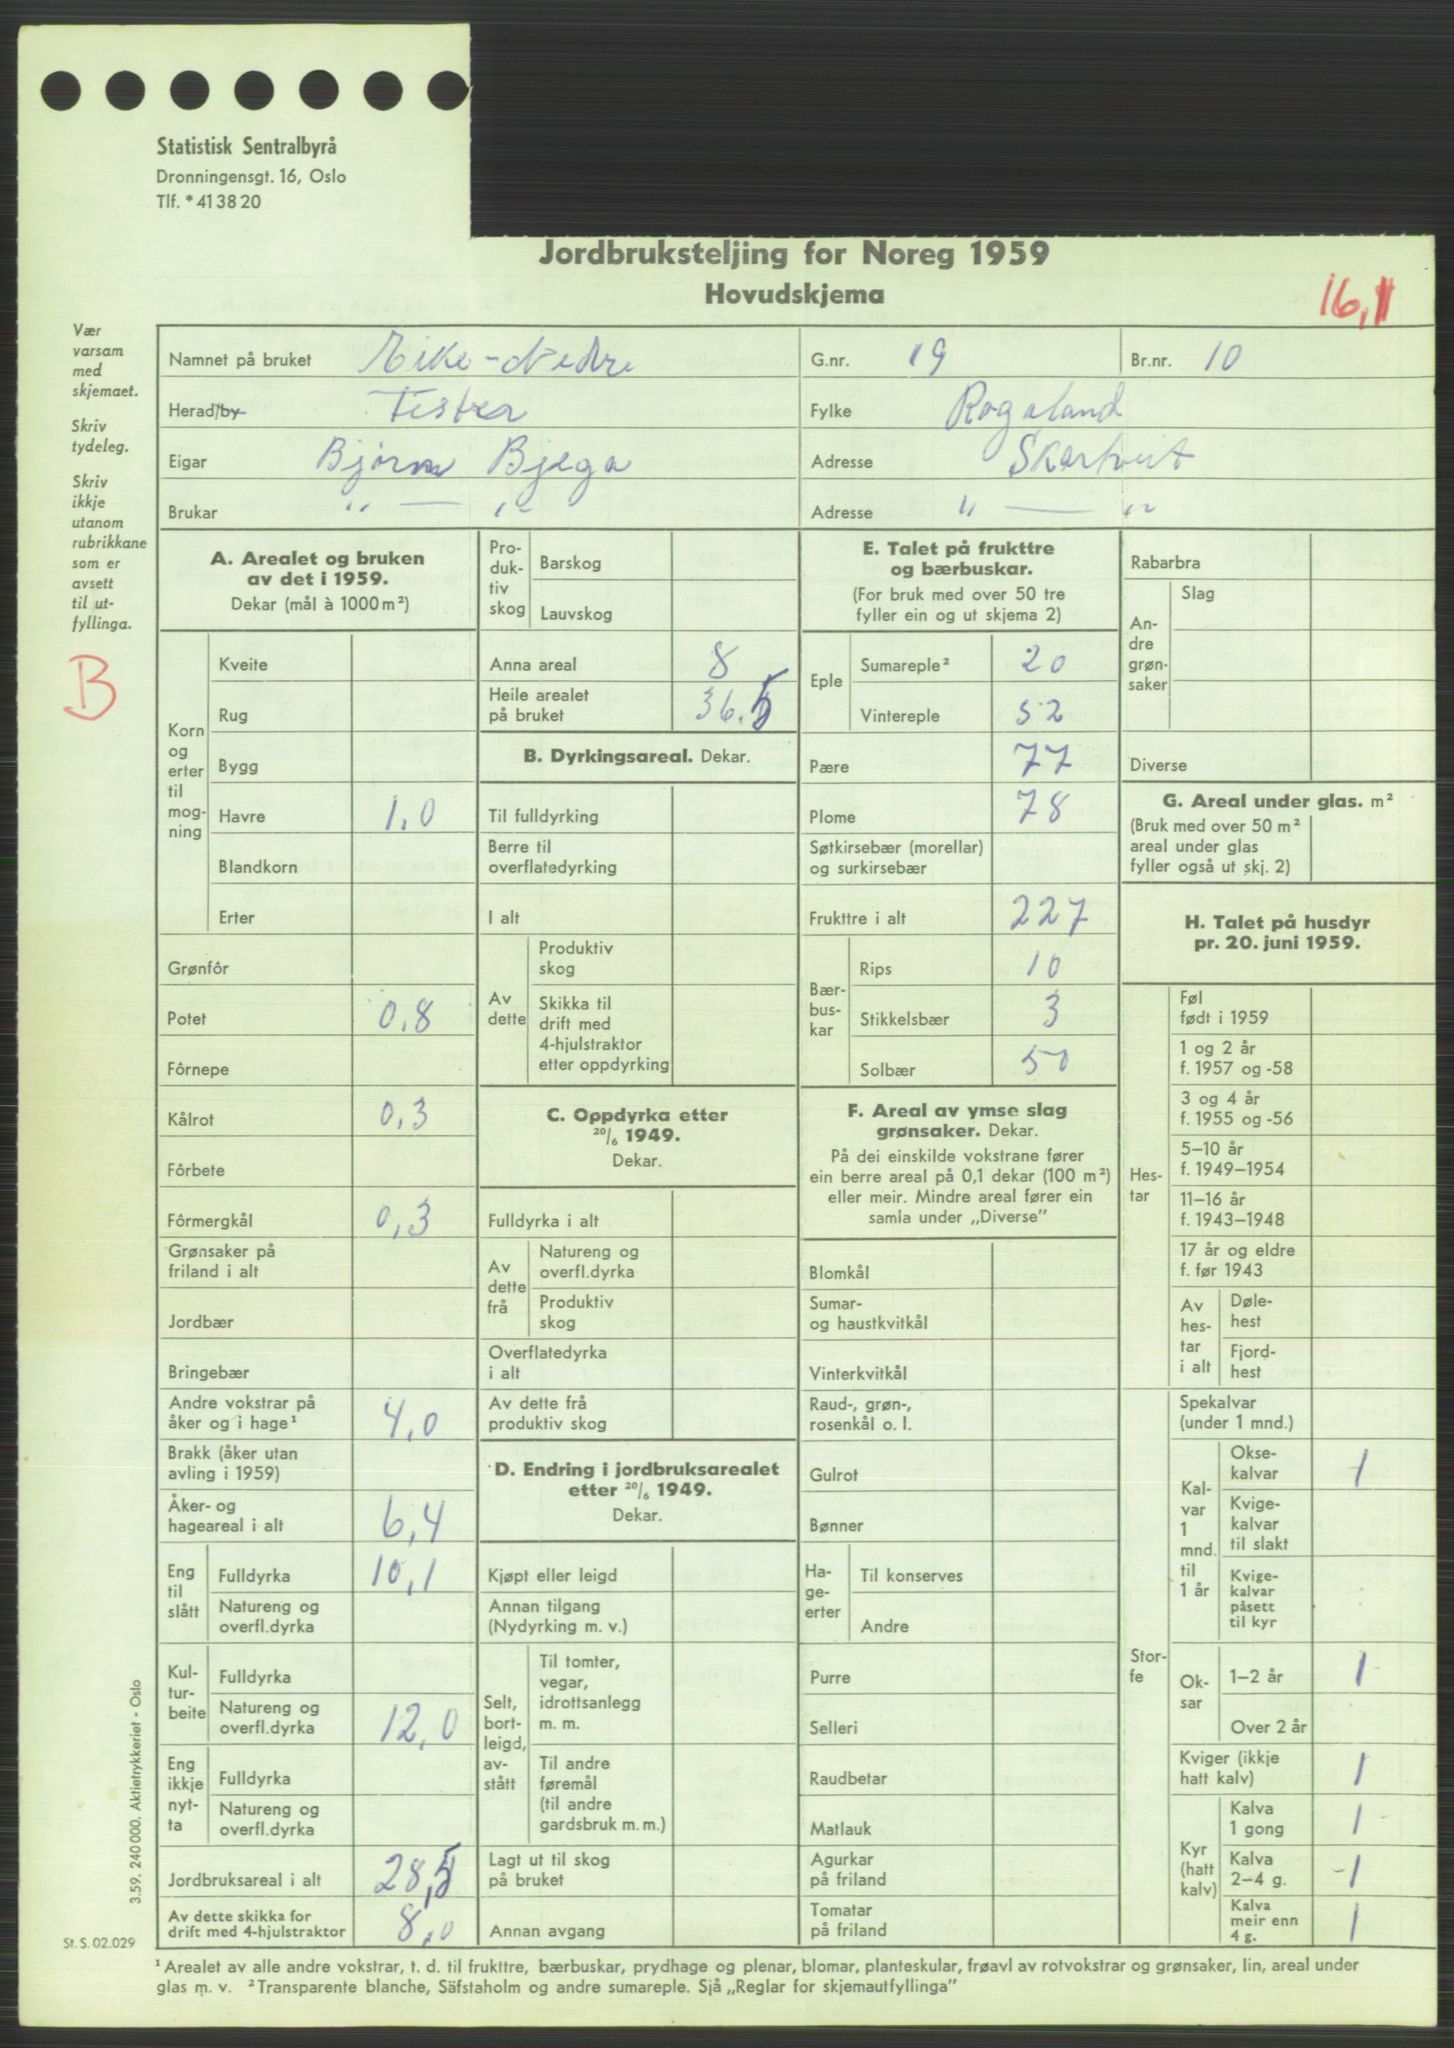 Statistisk Sentralbyrå
Dronningensgt. 16, Oslo
Tlf. * 41 38 20
Jordbruksteljing for Noreg 1959
Hovudskjema
16,1
Vær
varsam
med
skjemaet.
Skriv
tydeleg.
Skriv
ikkje
utanom
rubrikkane
som er
avsett
til ut-
fyllinga.
B
Namnet på bruket Eike-Nedre G.nr. 19 Br.nr. 10
Herad/by Fister Fylke Rogaland
Eigar Bjørn Bjega Adresse Skartveit
Brukar " — " Adresse " — "
A. Arealet og bruken
av det i 1959.
Dekar (mål à 1000 m²)
Korn
og
erter
til
mog-
ning
Kveite
Rug
Bygg
Havre 1,0
Blandkorn
Erter
Grønfôr
Potet 0,8
Fôrnepe
Kålrot 0,3
Fôrbete
Fôrmergkål 0,3
Grønsaker på
friland i alt
Jordbær
Bringebær
Andre vokstrar på
åker og i hage¹ 4,0
Brakk (åker utan
avling i 1959)
Åker- og
hageareal i alt 6,4
Eng
til
slått
Fulldyrka 10,1
Natureng og
overfl.dyrka
Kul-
tur-
beite
Fulldyrka
Natureng og
overfl.dyrka 12,0
Eng
ikkje
nyt-
ta
Fulldyrka
Natureng og
overfl.dyrka
Jordbruksareal i alt 28,5
Av dette skikka for
drift med 4-hjulstraktor 8,0
Pro-
duk-
tiv
skog
Barskog
Lauvskog
Anna areal 8
Heile arealet
på bruket 36.5
B. Dyrkingsareal. Dekar.
Til fulldyrking
Berre til
overflatedyrking
I alt
Av
dette
Produktiv
skog
Skikka til
drift med
4-hjulstraktor
etter oppdyrking
C. Oppdyrka etter
20/6 1949.
Dekar.
Fulldyrka i alt
Av
dette
frå
Natureng og
overfl.dyrka
Produktiv
skog
Overflatedyrka
i alt
Av dette frå
produktiv skog
D. Endring i jordbruksarealet
etter 20/6 1949.
Dekar.
Kjøpt eller leigd
Annan tilgang
(Nydyrking m. v.)
Selt,
bort-
leigd,
av-
stått
Til tomter,
vegar,
idrottsanlegg
m. m.
Til andre
føremål
(til andre
gardsbruk m. m.)
Lagt ut til skog
på bruket
Annan avgang
E. Talet på frukttre
og bærbuskar.
(For bruk med over 50 tre
fyller ein og ut skjema 2)
Eple
Sumareple² 20
Vintereple 52
Pære 77
Plome 78
Søtkirsebær (morellar)
og surkirsebær
Frukttre i alt 227
Bær-
bus-
kar
Rips 10
Stikkelsbær 3
Solbær 50
F. Areal av ymse slag
grønsaker. Dekar.
På dei einskilde vokstrane fører
ein berre areal på 0,1 dekar (100 m²)
eller meir. Mindre areal fører ein
samla under „Diverse”
Blomkål
Sumar-
og haustkvitkål
Vinterkvitkål
Raud-, grøn-,
rosenkål o. l.
Gulrot
Bønner
Ha-
ge-
erter
Til konserves
Andre
Purre
Selleri
Raudbetar
Matlauk
Agurkar
på friland
Tomatar
på friland
Rabarbra
An-
dre
grøn-
saker
Slag
Diverse
G. Areal under glas. m²
(Bruk med over 50 m²
areal under glas
fyller også ut skj. 2)
H. Talet på husdyr
pr. 20. juni 1959.
Hes-
tar
Føl
født i 1959
1 og 2 år
f. 1957 og -58
3 og 4 år
f. 1955 og -56
5–10 år
f. 1949–1954
11–16 år
f. 1943–1948
17 år og eldre
f. før 1943
Av
hes-
tar
i alt
Døle-
hest
Fjord-
hest
Stor-
fe
Spekalvar
(under 1 mnd.)
Kal-
var
1
mnd.
til
1 år
Okse-
kalvar 1
Kvige-
kalvar
til slakt
Kvige-
kalvar
påsett
til kyr
Ok-
sar
1–2 år 1
Over 2 år
Kviger (ikkje
hatt kalv) 1
Kyr
(hatt
kalv)
Kalva
1 gong 1
Kalva
2–4 g. 1
Kalva
meir enn
4 g. 1
3.59. 240 000. Aktietrykkeriet - Oslo
St. S. 02.029
¹ Arealet av alle andre vokstrar, t. d. til frukttre, bærbuskar, prydhage og plenar, blomar, planteskular, frøavl av rotvokstrar og grønsaker, lin, areal under
glas m. v. ² Transparente blanche, Säfstaholm og andre sumareple. Sjå „Reglar for skjemautfyllinga”